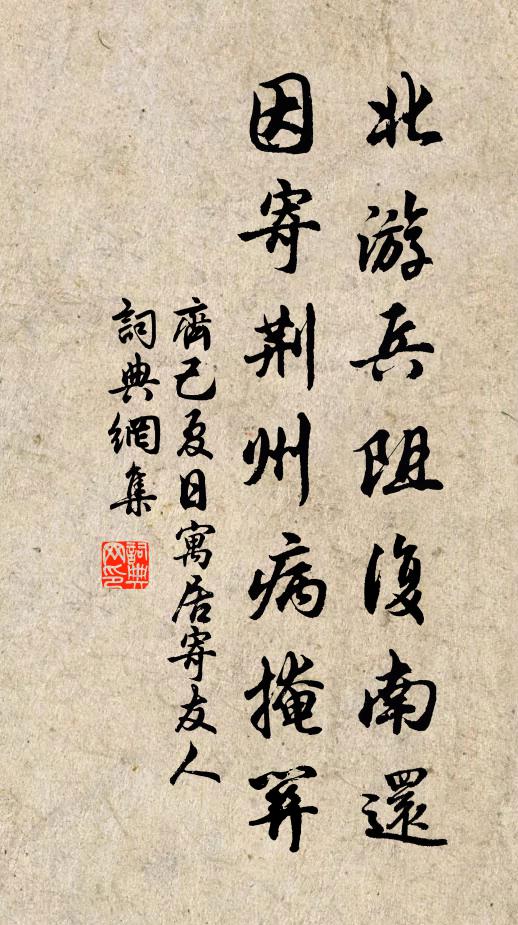 北游兵阻復南還
因寄荆州病掩關
齊己夏日寓居寄友人
詞典網集
詞典
网印